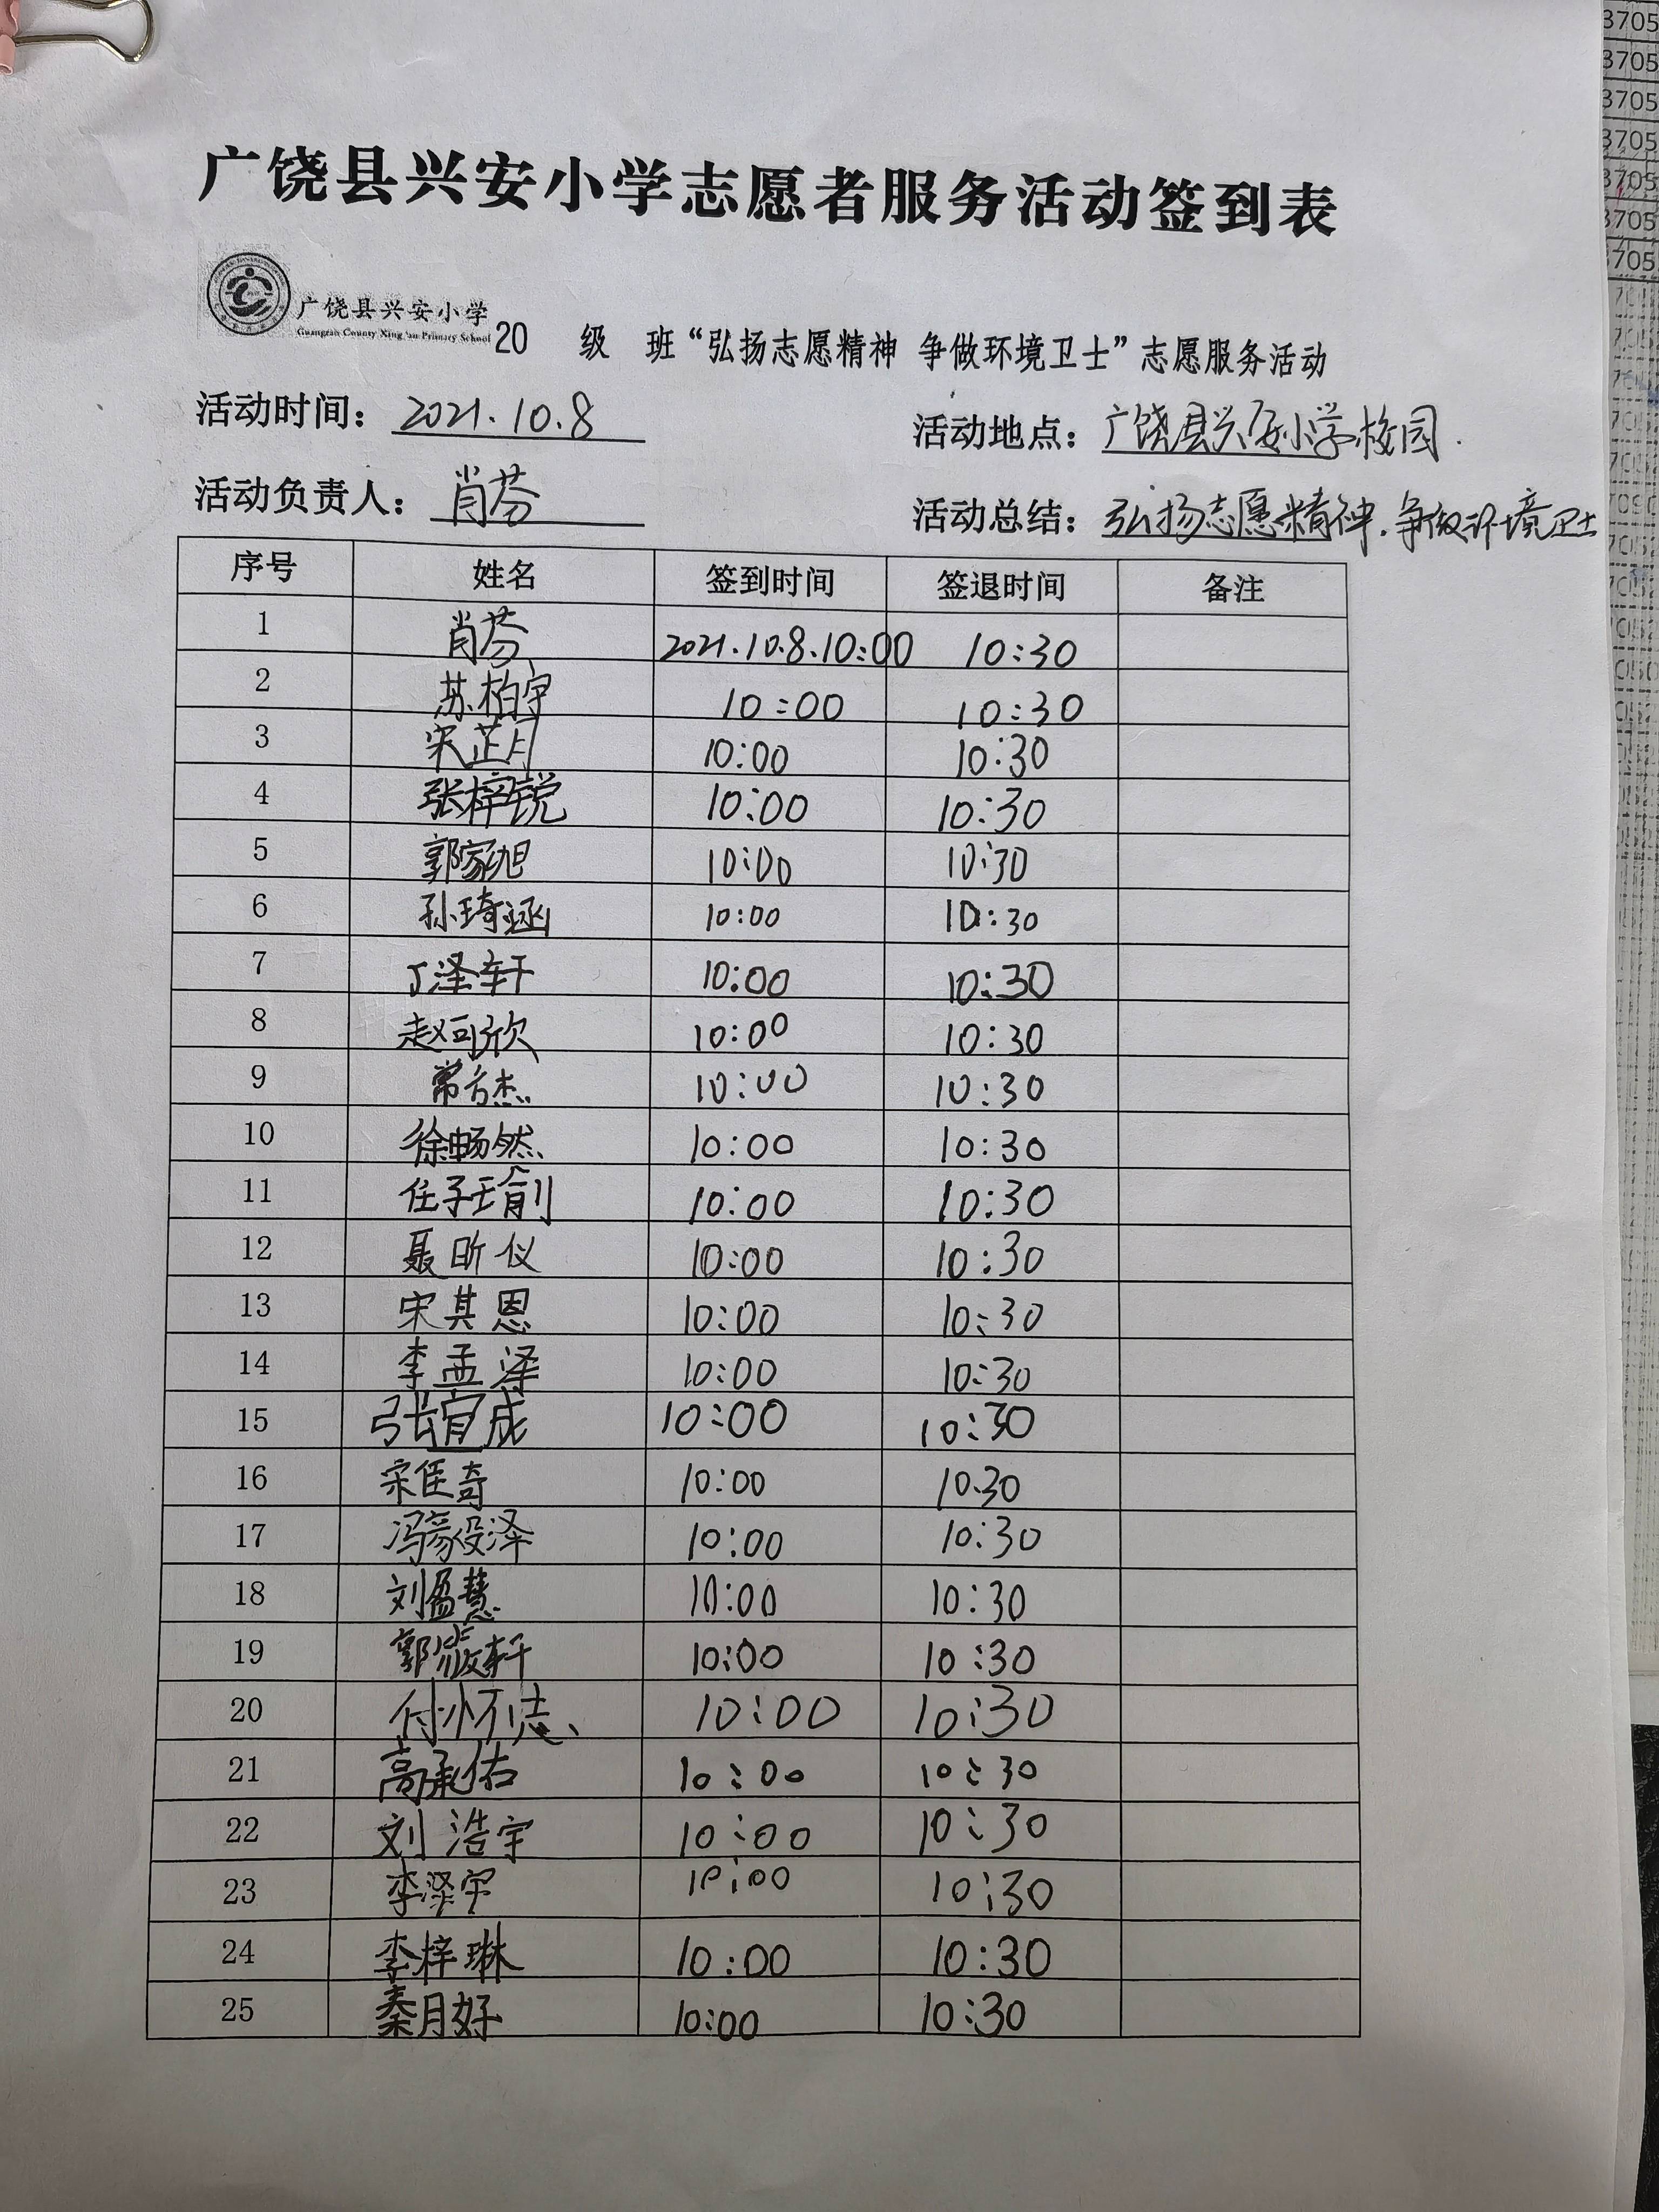 广饶县兴安小学志愿者服务活动签到表
广饶县兴安小学
Guangrao County Xing'an Primary School
20 级 班“弘扬志愿精神 争做环境卫士”志愿服务活动
活动时间：2021.10.8 活动地点：广饶县兴安小学校园.
活动负责人：肖芬 活动总结：弘扬志愿精神.争做环境卫士
序号 姓名 签到时间 签退时间 备注
1 肖芬 2021.10.8.10:00 10:30
2 苏柏宇 10:00 10:30
3 宋芷月 10:00 10:30
4 张梓锐 10:00 10:30
5 郭家旭 10:00 10:30
6 孙琦涵 10:00 10:30
7 丁泽轩 10:00 10:30
8 赵可欣 10:00 10:30
9 常方杰 10:00 10:30
10 徐畅然 10:00 10:30
11 任子瑜 10:00 10:30
12 聂昕仪 10:00 10:30
13 宋其恩 10:00 10:30
14 李孟泽 10:00 10:30
15 张宜成 10:00 10:30
16 宋佳奇 10:00 10:30
17 冯毅泽 10:00 10:30
18 刘盈慧 10:00 10:30
19 郭轩 10:00 10:30
20 付怀志 10:00 10:30
21 高承佑 10:00 10:30
22 刘浩宇 10:00 10:30
23 李泽宇 10:00 10:30
24 李梓琳 10:00 10:30
25 秦月好 10:00 10:30
3705
3705
3705
3705
3705
3705
3705